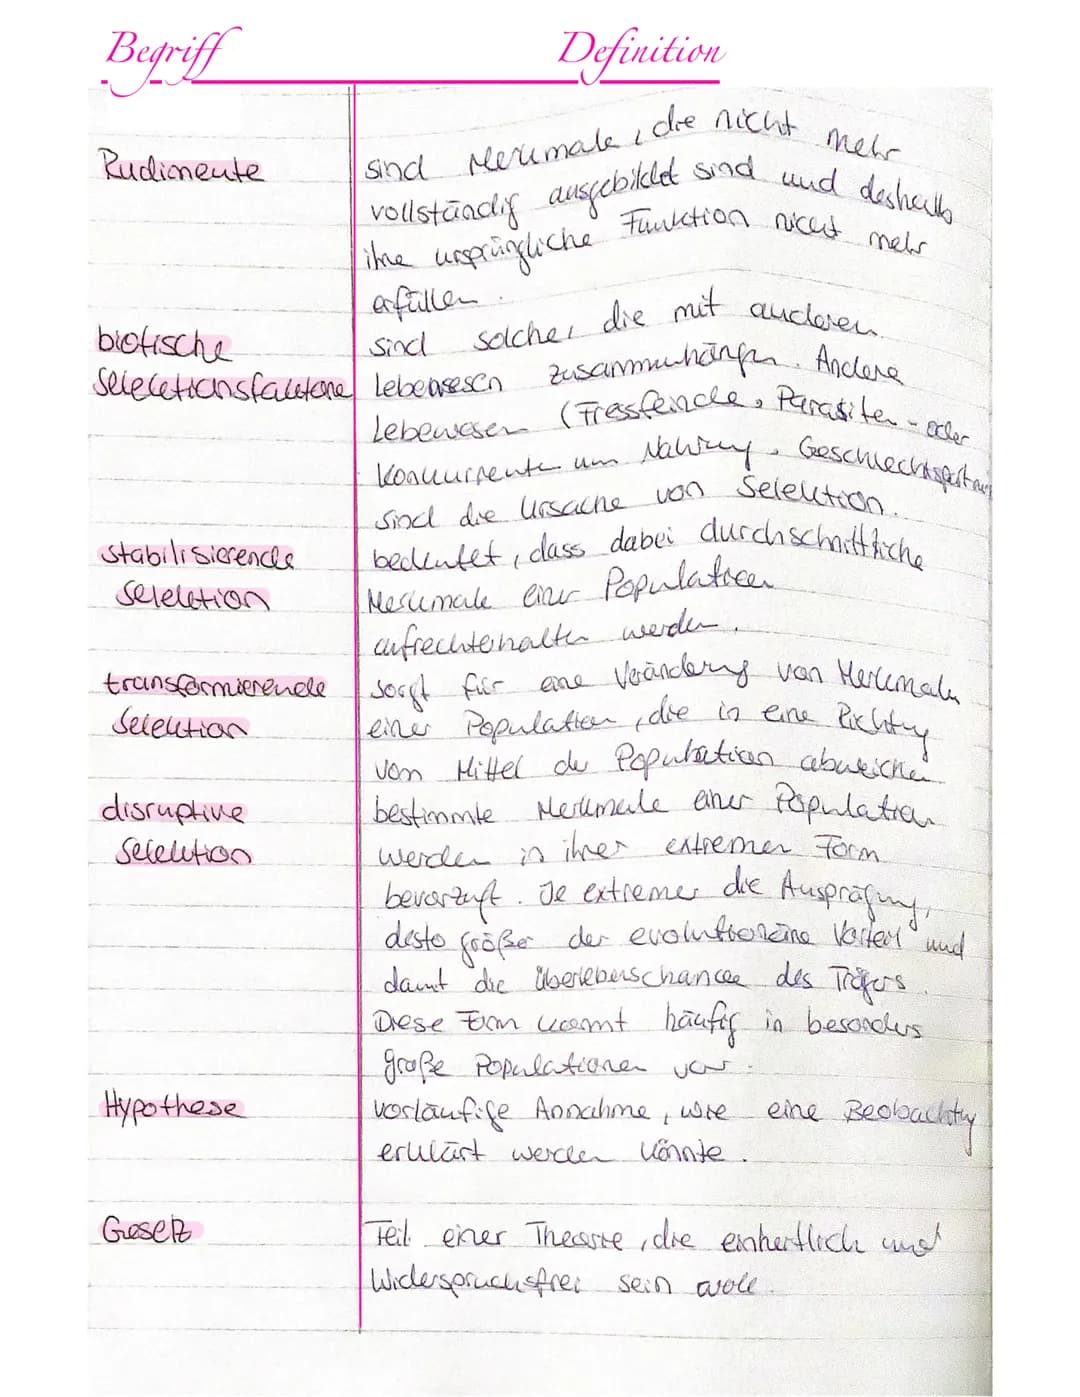 Begriff Definition
Rudimente sind Merkmale, die nicht mehr
vollständig ausgebildet sind und deshalb
ihre ursprüngliche Funktion nicht mehr
erfüllen.
biotische sind solche, die mit anderen
Selektionsfaktoren Lebewesen zusammenhängen. Andere
Lebewesen (Fressfeinde, Parasiten - oder
Konkurrenten um Nahrung, Geschlechtspartner
sind die Ursache von Selektion.
stabilisierende bedeutet, dass dabei durchschnittliche
Selektion Merkmale einer Population
aufrechterhalten werden.
transformierende sorgt für eine Veränderung von Merkmalen
Selektion einer Population, die in eine Richtung
vom Mittel der Population abweichen
disruptive bestimmte Merkmale einer Population
Selektion werden in ihrer extremen Form
bevorzugt. Je extremer die Ausprägung,
desto größer der evolutionäre Vorteil und
damit die Überlebenschance des Trägers.
Diese Form kommt häufig in besonders
große Populationen vor.
Hypothese vorläufige Annahme, wie eine Beobachtung
erklärt werden könnte.
Gesetz Teil einer Theorie, die einheitlich und
Widerspruchsfrei sein soll.